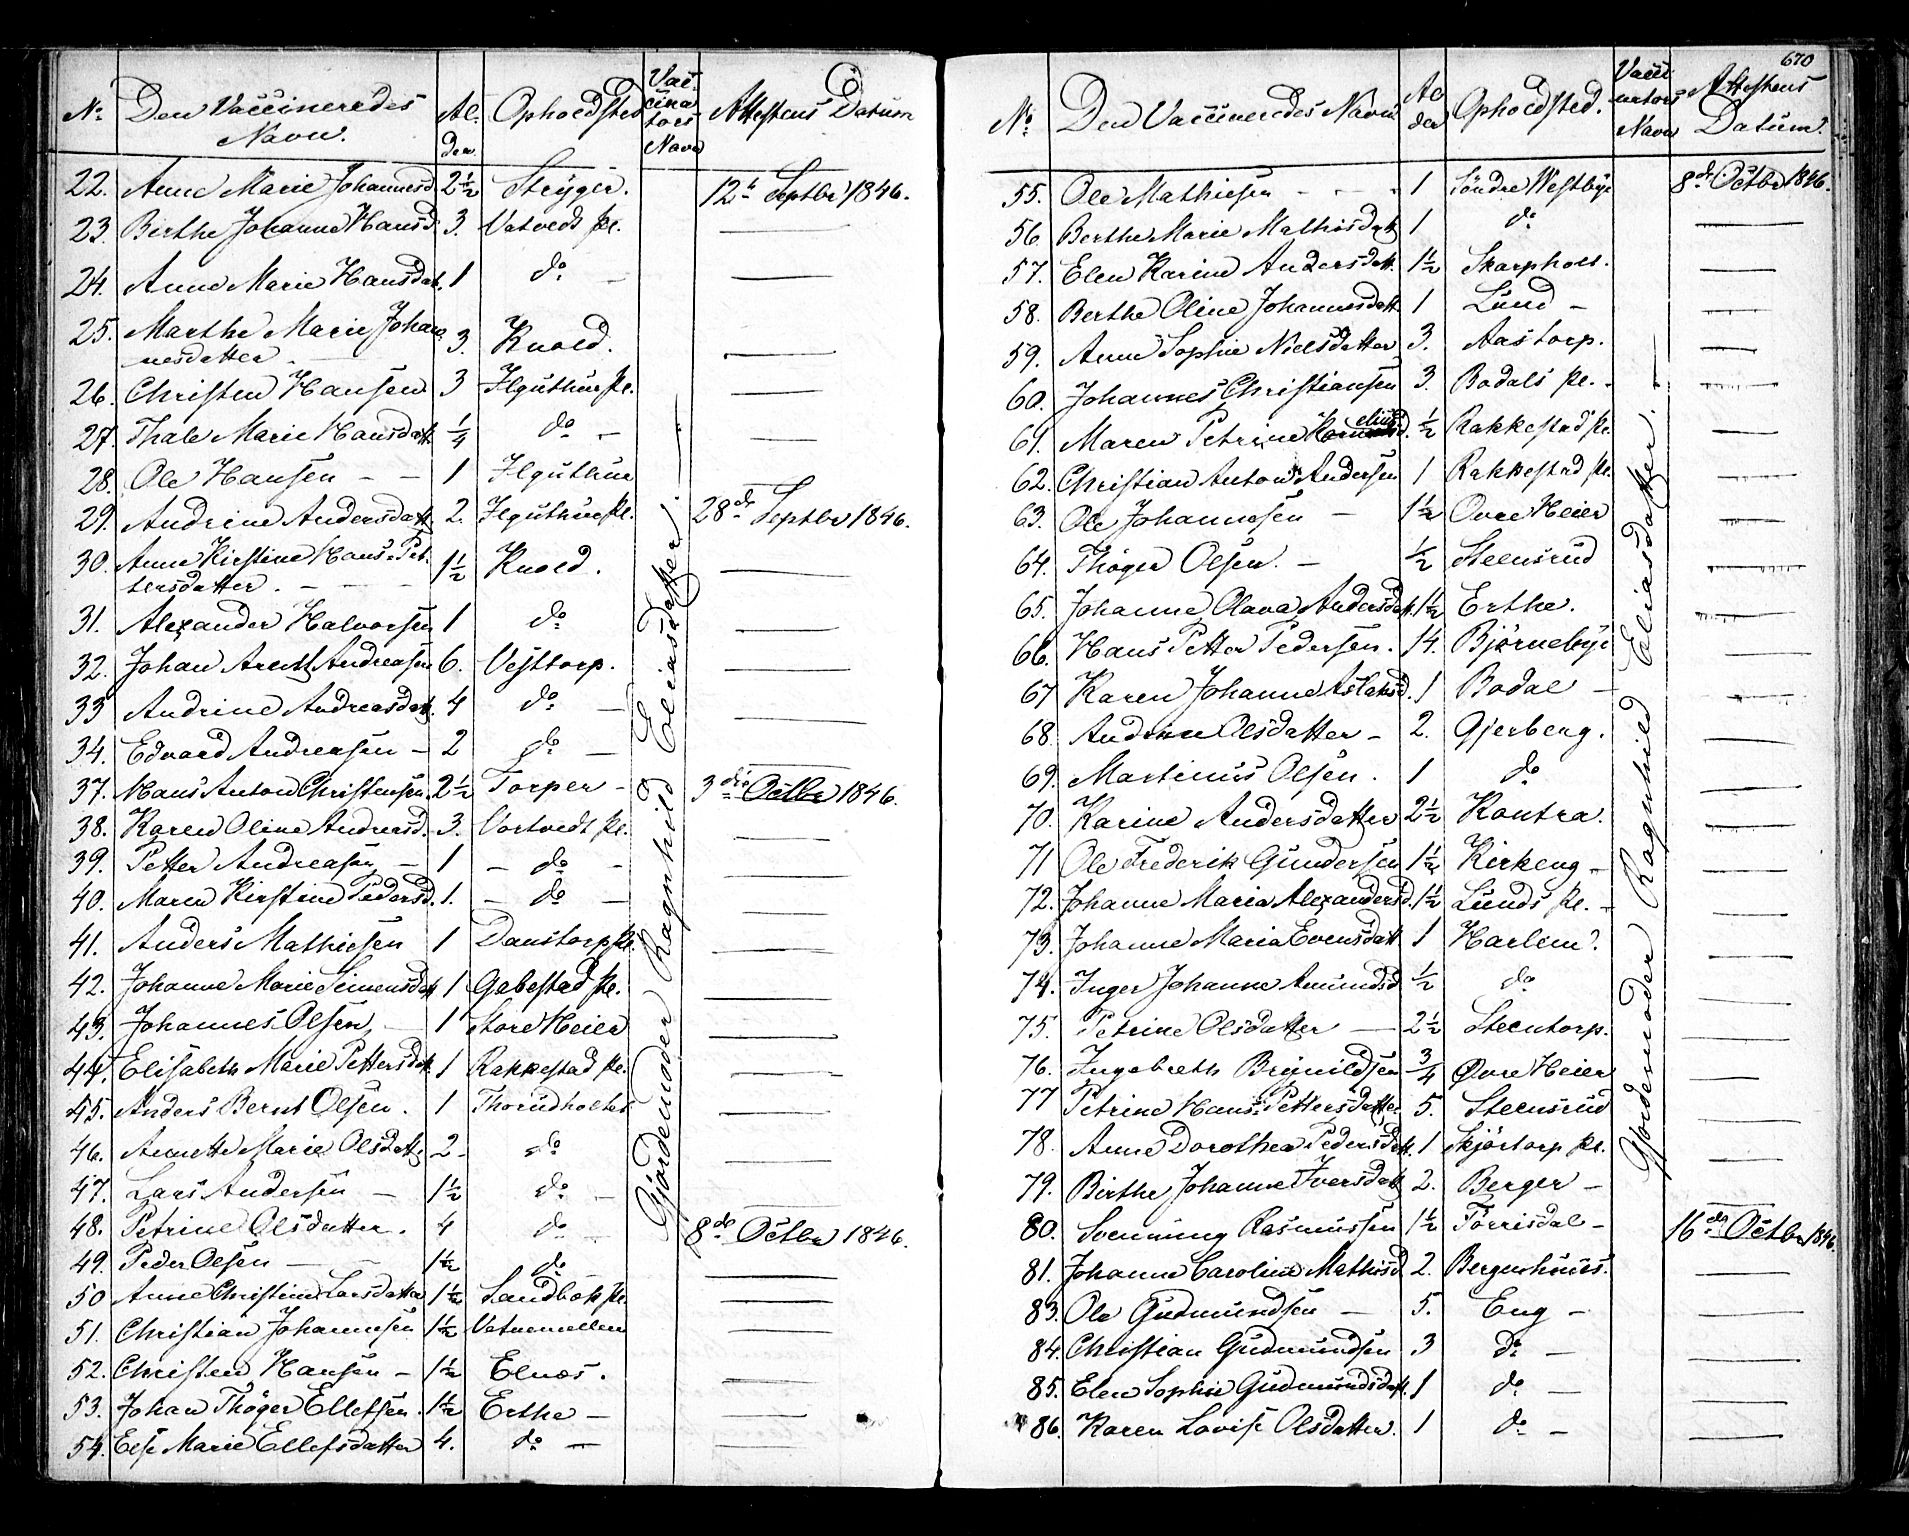 No. Den Vaccineredes Navn. Alder Opholdsted Vaccinators Navn Attestens Datum
22. Anne Marie Johannesd. 2½ Stryger. 12te Septbr 1846.
23. Birthe Johanne Hansd. 3. Vatvedt pl.
24. Anne Marie Hansdat. 1 do
25. Marthe Marie Johan
nesdatter 3. Knold.
26. Christen Hansen 3 Ilguthus pl.
27. Thale Marie Hansdatt ¼ do
28. Ole Hansen 1 Ilguthus
29. Andrine Andersdatt 2. Ilguthus pl. 28de Septbr 1846.
30. Anne Kirstine Hans Pet
tersdatter. 1½ Knold.
31. Alexander Halvorsen 1 do
32. Johan Arndt Andreasen 6. Vesttorp.
33 Andrine Andreasdatt. 4 do
34. Edvard Andreasen 2 do
37. Hans Anton Christensen 2½ Torper 3die Octbr 1846.
38. Karen Oline Andreasd. 3. Vortvedt pl.
39. Petter Andreasen 1 do
40. Maren Kirstine Pedersd. 1. do
41. Anders Mathiesen 1 Danstorp pl.
42. Johanne Marie Simensdatt 1 Gabestad pl.
43. Johannes Olsen 1 Store Heier
44. Elisabeth Marie Pettersdatt. 1 Rakkestad pl.
45. Anders Bernt Olsen. 1 Thorudholtet
46. Annette Marie Olsdatt. 2 do
47. Lars Andersen 1½ do
48. Petrine Olsdatter. 4 do 8de Octbr 1846.
49. Peder Olsen 1½ do
50 Anne Christine Larsdatter 1½ Sandbæk pl.
51. Christian Johannesen 1½ Vatnemellen
52. Christen Hansen 1½ Elnæs.
53. Johan Thøger Ellefsen. 1½ Erthe
54. Else Marie Ellefsdatter 4. do
Gjordemoder Ragnhild Eliasdatter.
670
No. Den Vaccineredes Navn Alder Opholdsted. Vaccinators Navn Attestens Datum.
55. Ole Mathiesen 1 Söndre Westbye 8de Octbr 1846.
56. Berthe Marie Mathisdatt 1 do
57. Elen Karine Andersdatt. 1½ Skarpholt.
58. Berthe Oline Johannesdatt 1 Lund
59. Anne Sophie Nielsdatter 3. Aastorp.
60. Johannes Christiansen 3. Bodals pl.
61. Maren Petrine ½ Rakkestad pl.
62. Christian Anton Andersen 1 Rakkestad pl.
63. Ole Johannesen 1½ Ovre Heier
64. Thøger Olsen. ½ Steensrud
65. Johanne Olava Andersdatt. 1½ Erthe.
66. Hans Petter Pedersen. 14. Bjørnebye
67 Karen Johanne Aslaksd. 1 Bodal
68. Andrine Olsdatter 2. Gjerberg.
69. Martinus Olsen. 1 do
70. Karine Andersdatter 2½ Kontra.
71 Ole Frederik Gundersen 1½ Kirkeng
72. Johanne Maria Alexandersd. 1½ Lunds pl.
73. Johanne Maria Evensdatt 1 Harlem.
74. Inger Johanne Amundsd ½ do
75. Petrine Olsdatter 2½ Steentorp.
76. Ingebreth Brynildsen ¾ Øvre Heier
77 Petrine Hans Pettersdatter 5. Steensrud
78. Anne Dorothea Pedersdatt. 1 Skjörtorp pl.
79. Birthe Johanne Iversdatt 2. Berger
80. Svenning Rasmussen 1½ Törrisdal 16de Octbr 1846.
81. Johanne Caroline Mathisd 2. Bergerhuus.
83. Ole Gudmundsen 5. Eng
84. Christian Gudmundsen 3 do
85. Elen Sophie Gudmundsdatt. 1 do
86. Karen Lovise Olsdatter. 1 do
Gjordemoder Ragnhild Eliasdatter.